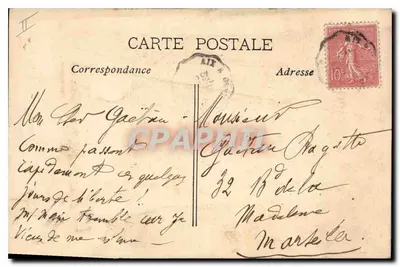 II
CARTE POSTALE
Correspondance
Adresse
AIX
10c
Mon cher Gaëtan
Comme passent
rapidement ces quelques
jours de liberté !
Ma main tremble car je
viens de me
Monsieur
Gaëtan
32 Bd de la
Madeleine
Marseille
CPAPHIL